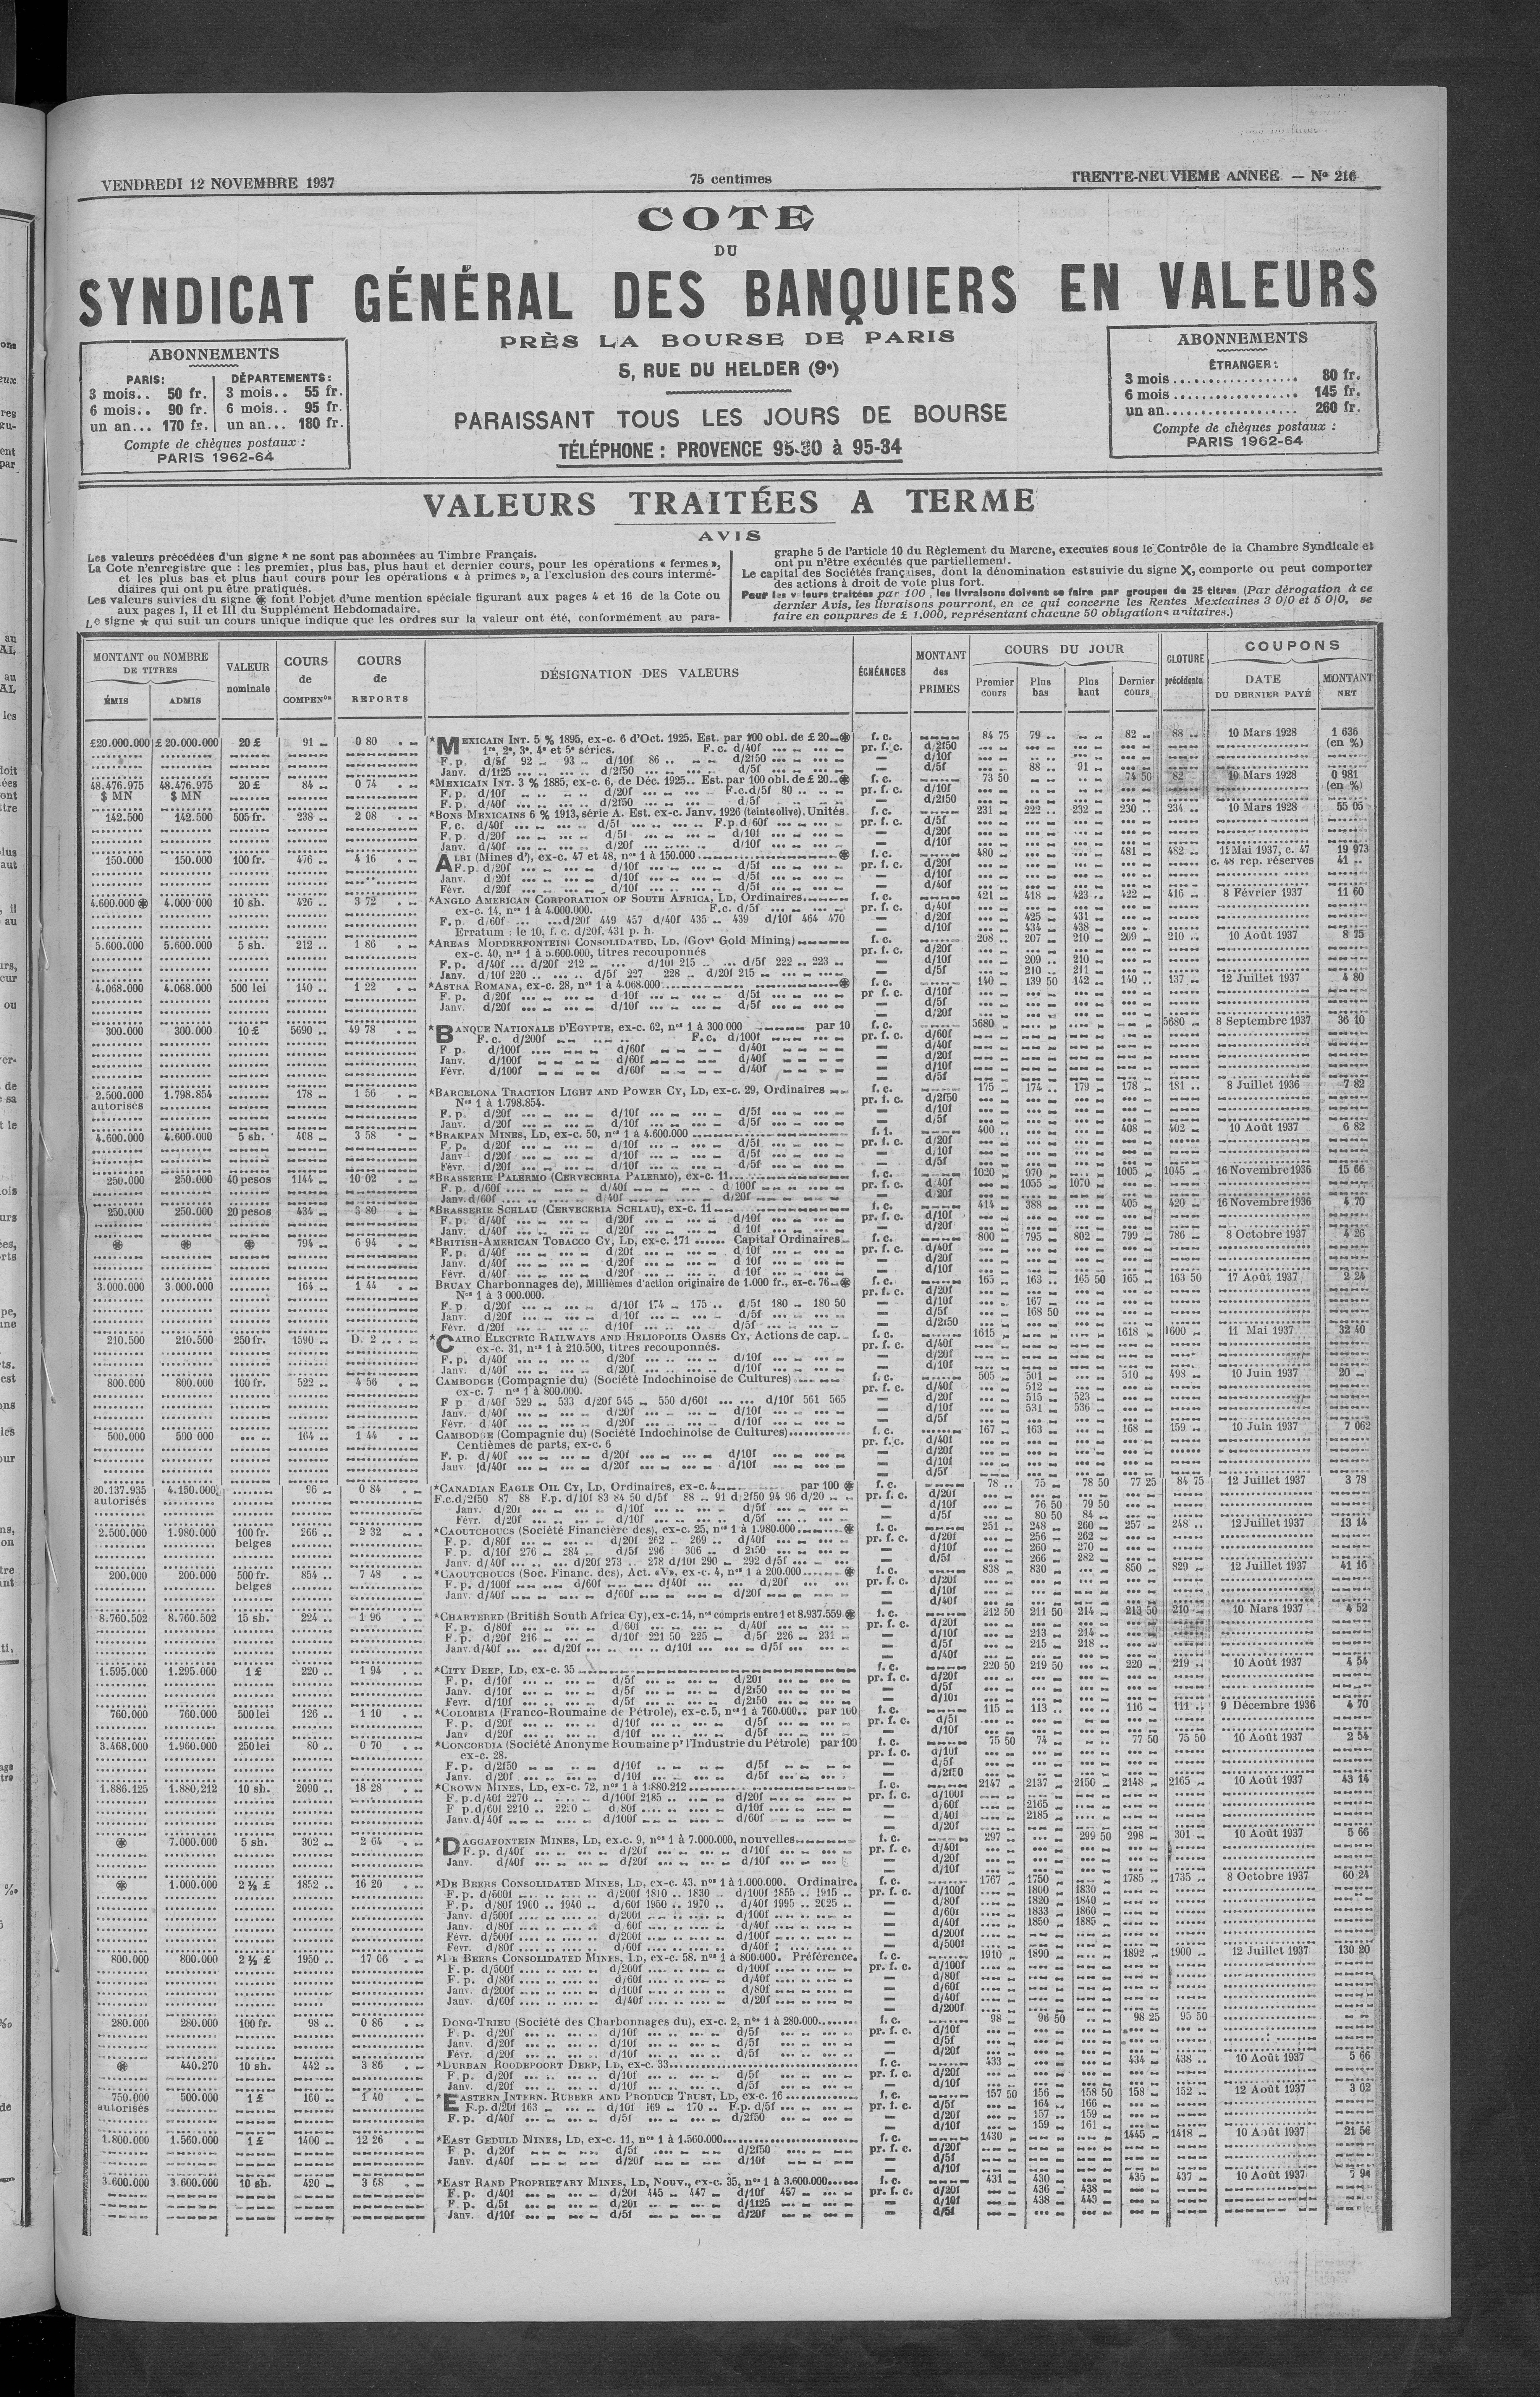 VENDREDI 12 NOVEMBRE 1937
75 centimes
TRENTE-NEUVIEME ANNEE — No 216
COTE
DU
SYNDICAT GÉNÉRAL DES BANQUIERS EN VALEURS
PRÈS LA BOURSE DE PARIS
5, RUE DU HELDER (9e)
PARAISSANT TOUS LES JOURS DE BOURSE
TÉLÉPHONE : PROVENCE 95-30 à 95-34
ABONNEMENTS
PARIS: DÉPARTEMENTS:
3 mois.. 50 fr. 3 mois.. 55 fr.
6 mois.. 90 fr. 6 mois.. 95 fr.
un an... 170 fr. un an... 180 fr.
Compte de chèques postaux :
PARIS 1962-64
ABONNEMENTS
ÉTRANGER:
3 mois.................. 80 fr.
6 mois.................. 145 fr.
un an................... 260 fr.
Compte de chèques postaux :
PARIS 1962-64
VALEURS TRAITÉES A TERME
AVIS
Les valeurs précédées d'un signe * ne sont pas abonnées au Timbre Français.
La Cote n'enregistre que : les premier, plus bas, plus haut et dernier cours, pour les opérations « fermes »,
et les plus bas et plus haut cours pour les opérations « à primes », a l'exclusion des cours intermé-
diaires qui ont pu être pratiqués.
Les valeurs suivies du signe ⊛ font l'objet d'une mention spéciale figurant aux pages 4 et 16 de la Cote ou
aux pages I, II et III du Supplément Hebdomadaire.
Le signe ★ qui suit un cours unique indique que les ordres sur la valeur ont été, conformément au para-
graphe 5 de l'article 10 du Règlement du Marche, executes sous le Contrôle de la Chambre Syndicale et
ont pu n'être exécutés que partiellement.
Le capital des Sociétés françaises, dont la dénomination est suivie du signe X, comporte ou peut comporter
des actions à droit de vote plus fort.
Pour les valeurs traitées par 100, les livraisons doivent se faire par groupes de 25 titres (Par dérogation à ce
dernier Avis, les livraisons pourront, en ce qui concerne les Rentes Mexicaines 3 0/0 et 5 0/0, se
faire en coupures de £ 1.000, représentant chacune 50 obligations unitaires.)
MONTANT ou NOMBRE DE TITRES
ÉMIS ADMIS
VALEUR nominale
COURS de COMPENon
COURS de REPORTS
DÉSIGNATION DES VALEURS
ÉCHÉANCES
MONTANT des PRIMES
COURS DU JOUR
Premier cours Plus bas Plus haut Dernier cours
CLOTURE précédente
COUPONS
DATE DU DERNIER PAYÉ MONTANT NET
£20.000.000 £ 20.000.000 20 £ 91 0 80 *MEXICAIN INT. 5 % 1895, ex-c. 6 d'Oct. 1925. Est. par 100 obl. de £ 20 ⊛ f. c. 84 75 79 82 88 10 Mars 1928 1 636
1re, 2e, 3e, 4e et 5e séries. F.c. d/40f pr. f. c. d/2f50 (en %)
F.p. d/5f 92 93 d/10f 86 d/2f50 — d/10f
Janv. d/1f25 d/2f50 d/5f — d/5f 88 91
48.476.975 48.476.975 20 £ 84 0 74 *MEXICAIN INT. 3 % 1885, ex-c. 6, de Déc. 1925. Est. par 100 obl. de £ 20 ⊛ f. c. 73 50 74 50 82 10 Mars 1928 0 981
$ MN $ MN F. p. d/10f d/20f F.c.d/5f 80 pr. f. c. d/10f (en %)
F. p. d/40f d/2f50 d/5f — d/2f50
142.500 142.500 505 fr. 238 2 08 *BONS MEXICAINS 6 % 1913, série A. Est. ex-c. Janv. 1926 (teinte olive). Unités f. c. 231 222 232 230 234 10 Mars 1928 55 05
F. c. d/40f d/5f F.p.d/60f pr. f. c. d/5f
F. p. d/20f d/5f d/10f — d/20f
Janv. d/40f d/20f d/5f — d/10f
150.000 150.000 100 fr. 476 4 16 ALBI (Mines d'), ex-c. 47 et 48, nos 1 à 150.000 ⊛ f. c. 480 481 482 11 Mai 1937, c. 47 19 973
F.p. d/20f d/10f d/5f pr. f. c. d/20f c. 48 rep. réserves 41
Janv. d/20f d/10f d/5f — d/10f
Févr. d/20f d/10f d/5f — d/40f
4.600.000 ⊛ 4.000 000 10 sh. 426 3 72 *ANGLO AMERICAN CORPORATION OF SOUTH AFRICA, LD, Ordinaires f. c. 421 418 423 422 416 8 Février 1937 11 60
ex-c. 14, nos 1 à 4.000.000. F.c. d/5f pr. f. c. d/40f
F. p. d/60f d/20f 449 457 d/40f 435 439 d/10f 464 470 — d/20f 425 431
Erratum : le 10, f. c. d/20f. 431 p. h. — d/10f 434 438
5.600.000 5.600.000 5 sh. 212 1 86 *AREAS MODDERFONTEIN CONSOLIDATED, LD. (Govt Gold Mining) f. c. 208 207 210 209 210 10 Août 1937 8 75
ex-c. 40, nos 1 à 5.600.000, titres recouponnés pr. f. c. d/20f
F. p. d/40f d/20f 212 d/10f 215 d/5f 222 223 — d/10f 209 210
Janv. d/10f 220 d/5f 227 228 d/20f 215 — d/5f 210 211
4.068.000 4.068.000 500 lei 140 1 22 *ASTRA ROMANA, ex-c. 28, nos 1 à 4.068.000 ⊛ f. c. 140 139 50 142 140 137 12 Juillet 1937 4 80
F. p. d/20f d/10f d/5f pr f. c. d/10f
Janv. d/20f d/10f d/5f — d/5f
300.000 300.000 10 £ 5690 49 78 *BANQUE NATIONALE D'EGYPTE, ex-c. 62, nos 1 à 300 000 par 10 f. c. 5680 5680 8 Septembre 1937 36 10
F. c. d/200f F.c. d/100f pr. f. c. d/60f
F p. d/100f d/60f d/40f — d/40f
Janv. d/100f d/60f d/40f — d/20f
Févr. d/100f d/60f d/40f — d/10f
2.500.000 1.798.854 178 1 56 *BARCELONA TRACTION LIGHT AND POWER CY, LD, ex-c. 29, Ordinaires f. c. 175 174 179 178 181 8 Juillet 1936 7 82
autorisés Nos 1 à 1.798.854. pr. f. c. d/2f50
F. p. d/20f d/10f d/5f — d/10f
Janv. d/20f d/10f d/5f — d/5f
4.600.000 4.600.000 5 sh. 408 3 58 *BRAKPAN MINES, LD, ex-c. 50, nos 1 à 4.600.000 400 408 402 10 Août 1937 6 82
F. p. d/20f d/10f d/5f pr. f. c. d/20f
Janv d/20f d/10f d/5f — d/10f
Févr. d/20f d/10f d/5f — d/5f
250.000 250.000 40 pesos 1144 10 02 *BRASSERIE PALERMO (CERVECERIA PALERMO), ex-c. 11 f. c. 1020 970 1005 1045 16 Novembre 1936 15 66
F. p. d/60f d 100f d 100f pr. f. c. d 40f 1055 1070
Janv. d/60f d/40f d/20f — d 20f
250.000 250.000 20 pesos 434 3 80 *BRASSERIE SCHLAU (CERVECERIA SCHLAU), ex-c. 11 f. c. 414 388 405 420 16 Novembre 1936 4 70
F. p. d/40f d/20f d/10f pr. f. c. d/10f
Janv. d/40f d/20f d 10f — d/20f
⊛ ⊛ ⊛ 794 6 94 *BRITISH-AMERICAN TOBACCO CY, LD, ex-c. 171 Capital Ordinaires f. c. 800 795 802 799 786 8 Octobre 1937 4 26
F. p. d/40f d/20f d 10f pr. f. c. d/40f
Janv. d/40f d/20f d 10f — d/20f
Févr. d/40f d/20f d 10f — d/10f
3.000.000 3 000.000 164 1 44 BRUAY Charbonnages de), Millièmes d'action originaire de 1.000 fr., ex-c. 76 ⊛ f. c. 165 163 165 50 165 163 50 17 Août 1937 2 24
Nos 1 à 3 000.000. pr. f. c. d/20f
F. p d/20f d/10f 174 175 d/5f 180 180 50 — d/10f 167
Janv. d/20f d/10f d/5f — d/5f 168 50
Févr. d/20f d/10f d/5f — d/2f50
210.500 210.500 250 fr. 1590 D. 2 *CAIRO ELECTRIC RAILWAYS AND HELIOPOLIS OASES CY, Actions de cap. f. c. 1615 1618 1600 11 Mai 1937 32 40
ex-c. 31, nos 1 à 210.500, titres recouponnés. pr. f. c. d/40f
F. p. d/40f d/20f d/10f — d/20f
Janv. d/40f d/20f d/10f — d/10f
800.000 800.000 100 fr. 522 4 56 CAMBODGE (Compagnie du) (Société Indochinoise de Cultures) f. c. 505 501 510 498 10 Juin 1937 20
ex-c. 7 nos 1 à 800.000. pr. f. c. d/40f 512
F p d/40f 529 533 d/20f 545 550 d/60f d/10f 561 565 — d/20f 515 523
Janv. d 40f d/20f d/10f — d/10f 531 536
Févr. d 40f d/20f d/10f — d/5f
500.000 500 000 164 1 44 CAMBODGE (Compagnie du) (Société Indochinoise de Cultures) f. c. 167 163 168 159 10 Juin 1937 7 062
Centièmes de parts, ex-c. 6 pr. f. c. d/40f
F. p. d/40f d/20f d/10f — d/20f
Janv d/40f d/20f d/10f — d/10f
20.137.935 4.150.000 96 0 84 *CANADIAN EAGLE OIL CY, LD, Ordinaires, ex-c. 4 par 100 ⊛ f. c. 78 75 78 50 77 25 84 75 12 Juillet 1937 3 78
autorisés F.c.d/2f50 87 88 F.p. d/10f 83 84 50 d/5f 88 91 d 2f50 94 96 d/20 pr. f. c. d/20f
Janv. d/20f d/10f d/5f — d/10f 76 50 79 50
Févr. d/20f d/10f d/5f — d/5f 80 50 84
2.500.000 1.980.000 100 fr. belges 266 2 32 *CAOUTCHOUCS (Société Financière des), ex-c. 25, nos 1 à 1.980.000 ⊛ f. c. 251 248 260 257 248 12 Juillet 1937 13 14
F. p. d/80f d/20f 262 269 d/40f pr. f. c. d/20f 256 262
F. p. d/10f 276 284 d/5f 296 306 d 2f50 — d/10f 260 270
Janv. d/40f d/20f 273 278 d/10f 290 292 d/5f — d/5f 266 282
200.000 200.000 500 fr. belges 854 7 48 *CAOUTCHOUCS (Soc. Financ. des), Act. «V», ex-c. 4, nos 1 à 200.000 ⊛ f. c. 838 830 850 829 12 Juillet 1937 41 16
F. p. d/100f d/60f d/40f d/20f pr. f. c. d/20f
Janv. d/40f d/60f d/20f — d/10f
8.760.502 8.760.502 15 sh. 224 1 96 *CHARTERED (British South Africa Cy), ex-c. 14, nos compris entre 1 et 8.937.559 ⊛ f. c. 212 50 211 50 214 213 50 210 10 Mars 1937 4 52
F. p. d/80f d/60f d/40f pr. f. c. d/20f
F. p. d/20f 216 d/10f 221 50 225 d/5f 226 231 — d/10f 213 214
Janv. d/40f d/20f d/10f d/5f — d/5f 215 218
1.595.000 1.295.000 1 £ 220 1 94 *CITY DEEP, LD, ex-c. 35 f. c. 220 50 219 50 220 219 10 Août 1937 4 54
F. p. d/10f d/5f d/20f pr. f. c. d/20f
Janv. d/10f d/5f d/2f50 — d/5f
Fevr. d/10f d/5f d/2f50 — d/10f
760.000 760.000 500 lei 126 1 10 *COLOMBIA (Franco-Roumaine de Pétrole), ex-c. 5, nos 1 à 760.000 par 100 f. c. 115 113 116 111 9 Décembre 1936 4 70
F. p. d/20f d/10f d/5f pr. f. c. d/5f
Janv d/20f d/10f d/5f — d/10f
3.468.000 1.960.000 250 lei 80 0 70 *CONCORDIA (Société Anonyme Roumaine pr l'Industrie du Pétrole) par 100 f. c. 75 50 74 77 50 75 50 10 Août 1937 2 54
ex-c. 28. pr. f. c. d/10f
F. p. d/2f50 d/10f d/5f — d/5f
Janv. d/20f d/10f d/5f — d/2f50
1.886.125 1.880,212 10 sh. 2090 18 28 *CROWN MINES, LD, ex-c. 72, nos 1 à 1.880.212 f. c. 2147 2137 2150 2148 2165 10 Août 1937 43 14
F. p. d/40f 2270 d/100f 2185 d/20f pr. f. c. d/100f
F p. d/60f 2210 2220 d 80f d/10f — d/60f 2165
Janv. d/40f d/100f d/60f — d/40f 2185
⊛ 7.000.000 5 sh. 302 2 64 *DAGGAFONTEIN MINES, LD, ex.c. 9, nos 1 à 7.000.000, nouvelles f. c. 297 299 50 298 301 10 Août 1937 5 66
F. p. d/40f d/20f d/10f pr. f. c. d/40f
Janv. d/40f d/20f d/10f — d/20f
⊛ 1.000.000 2 ½ £ 1852 16 20 *DE BEERS CONSOLIDATED MINES, LD, ex-c. 43. nos 1 à 1.000.000. Ordinaire. f. c. 1767 1750 1785 1735 8 Octobre 1937 60 24
F. p. d/600f d/200f 1810 1830 d/100f 1855 1915 pr. f. c. d/100f 1800 1830
F. p. d/80f 1900 1940 d/60f 1950 1970 d/40f 1995 2025 — d/80f 1820 1840
Janv. d/500f d/200f d/100f — d/60f 1833 1860
Janv. d/80f d 60f d/40f — d/40f 1850 1885
Févr. d/500f d/200f d/100f — d/200f
Fevr. d/80f d/60f d/40f — d/500f
800.000 800.000 2 ½ £ 1950 17 06 *DE BEERS CONSOLIDATED MINES, LD, ex-c. 58. nos 1 à 800.000. Préférence. f. c. 1910 1890 1892 1900 12 Juillet 1937 130 20
F. p. d/500f d/200f d/100f pr. f. c. d/100f
F. p. d/80f d/60f d/40f — d/80f
Janv. d/200f d/100f d/80f — d/60f
Janv. d/60f d/40f d/20f — d/40f
280.000 280.000 100 fr. 98 0 86 DONG-TRIEU (Société des Charbonnages du), ex-c. 2, nos 1 à 280.000 f. c. 98 96 50 98 25 95 50
F. p. d/20f d/10f d/5f pr. f. c. d/10f
Janv. d/20f d/10f d/5f — d/5f
Févr. d/20f d/10f d/5f — d/20f
⊛ 440.270 10 sh. 442 3 86 *DURBAN ROODEPOORT DEEP, LD, ex-c. 33 f. c. 433 434 438 10 Août 1937 5 66
F. p. d/20f d/10f d/5f pr. f. c. d/20f
Janv. d/20f d/10f d/5f — d/10f
750.000 500.000 1 £ 160 1 40 *EASTERN INTERN. RUBBER AND PRODUCE TRUST, LD, ex-c. 16 f. c. 157 50 156 158 50 158 152 12 Août 1937 3 02
autorisés F.p. d/20f 163 d/10f 169 170 F.p. d/5f pr. f. c. d/5f 164 166
F. p. d/40f d/5f d/2f50 — d/20f 157 159
— d/10f 159 161
1.800.000 1.560.000 1 £ 1400 12 26 *EAST GEDULD MINES, LD, ex-c. 11, nos 1 à 1.560.000 f. c. 1430 1445 1418 10 Août 1937 21 56
F. p. d/20f d/5f d/2f50 pr. f. c. d/20f
Janv. d/40f d/20f d/10f — d/5f
3.600.000 3.600.000 10 sh. 420 3 68 *EAST RAND PROPRIETARY MINES, LD, Nouv., ex-c. 35, nos 1 à 3.600.000 f. c. 431 430 435 437 10 Août 1937 7 94
F. p. d/40f d/20f 445 447 d/10f 457 pr. f. c. d/20f 436 438
F. p. d/5f d/20f d/1f25 — d/10f 438 443
Janv. d/10f d/5f d/20f — d/5f